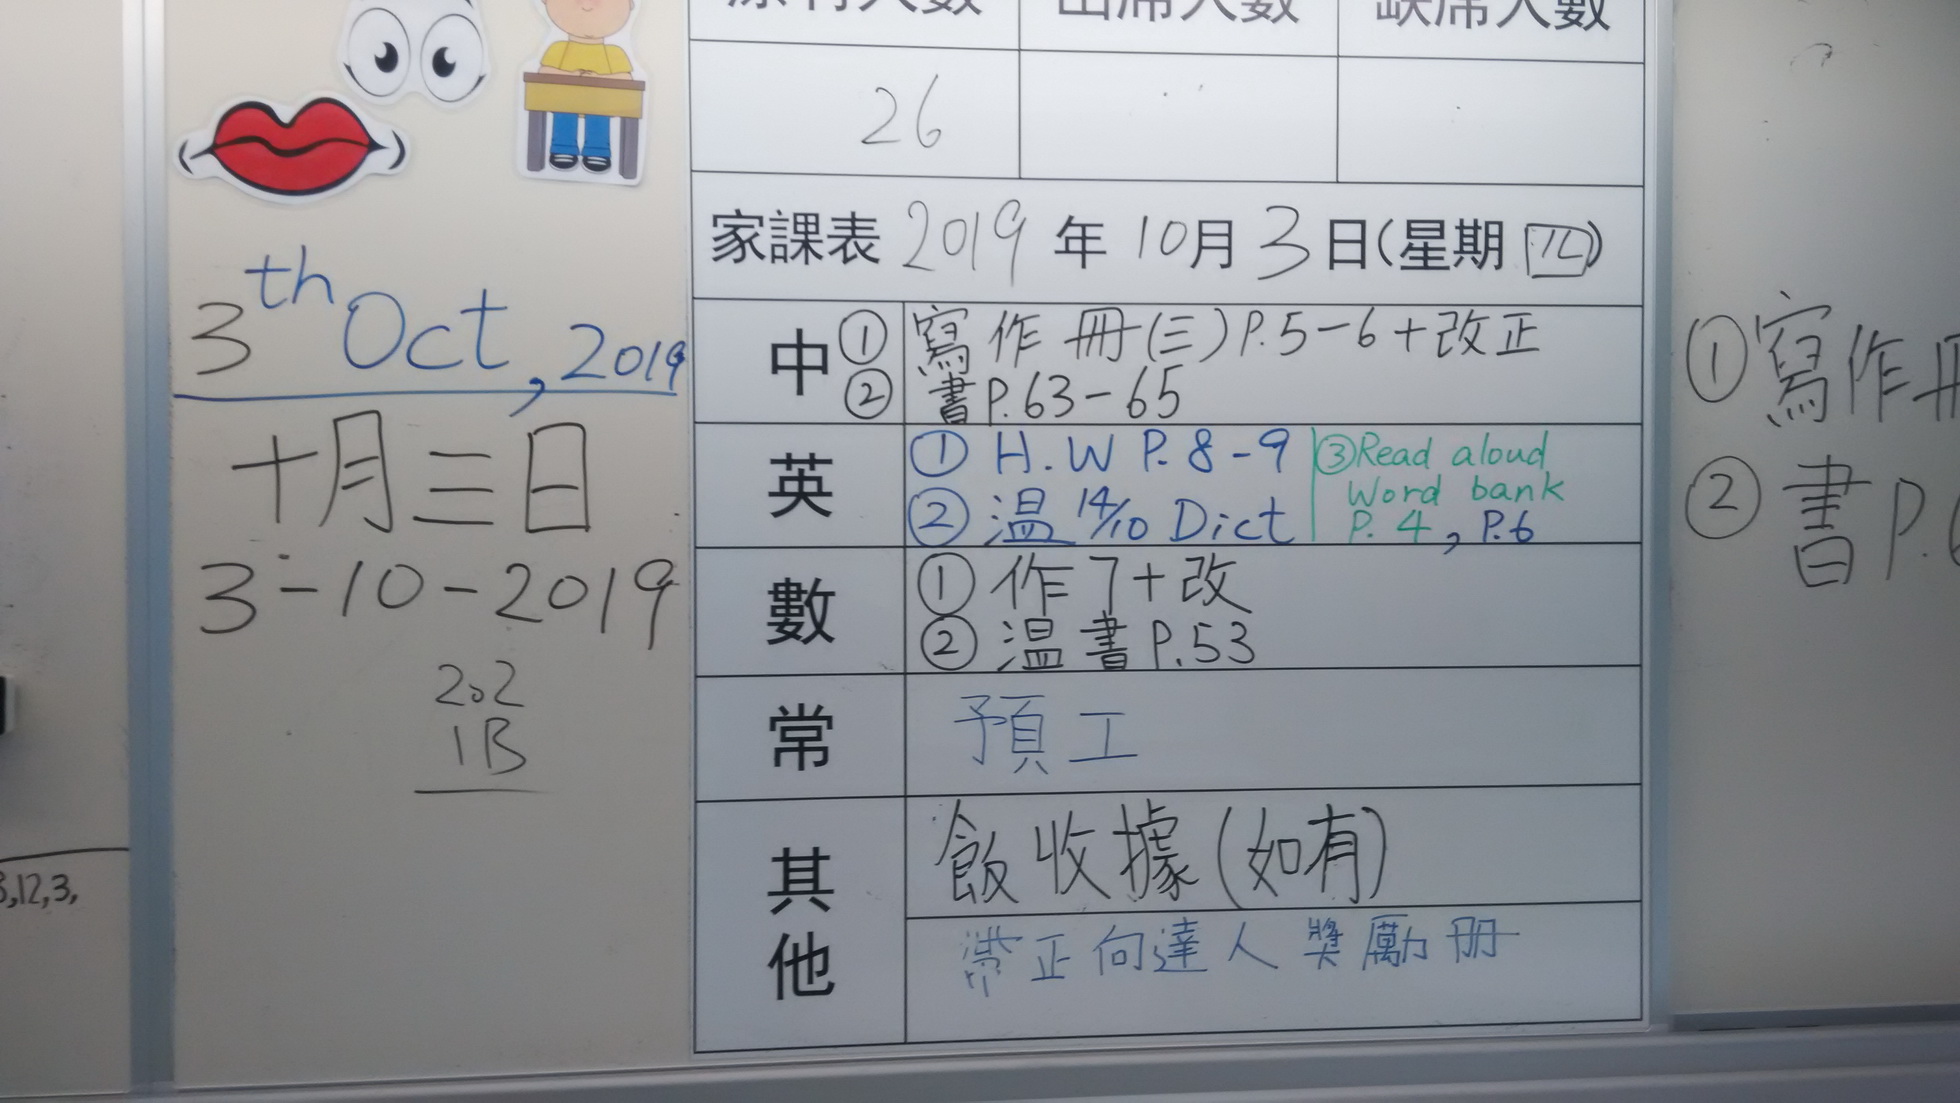 原有人數 出席人數 缺席人數
26
家課表 2019 年 10月 3 日(星期 四)
中 ① 寫作冊(三) P.5-6+改正
② 書 P.63-65
英 ① H.W P.8-9
② 温 14/10 Dict
③ Read aloud
Word bank
P.4, P.6
數 ① 作7+改
② 温書 P.53
常 預工
其他 飯收據(如有)
帶正向達人獎勵冊
3th Oct, 2019
十月三日
3-10-2019
202
1B
3,12,3,
① 寫作冊
② 書 P.6